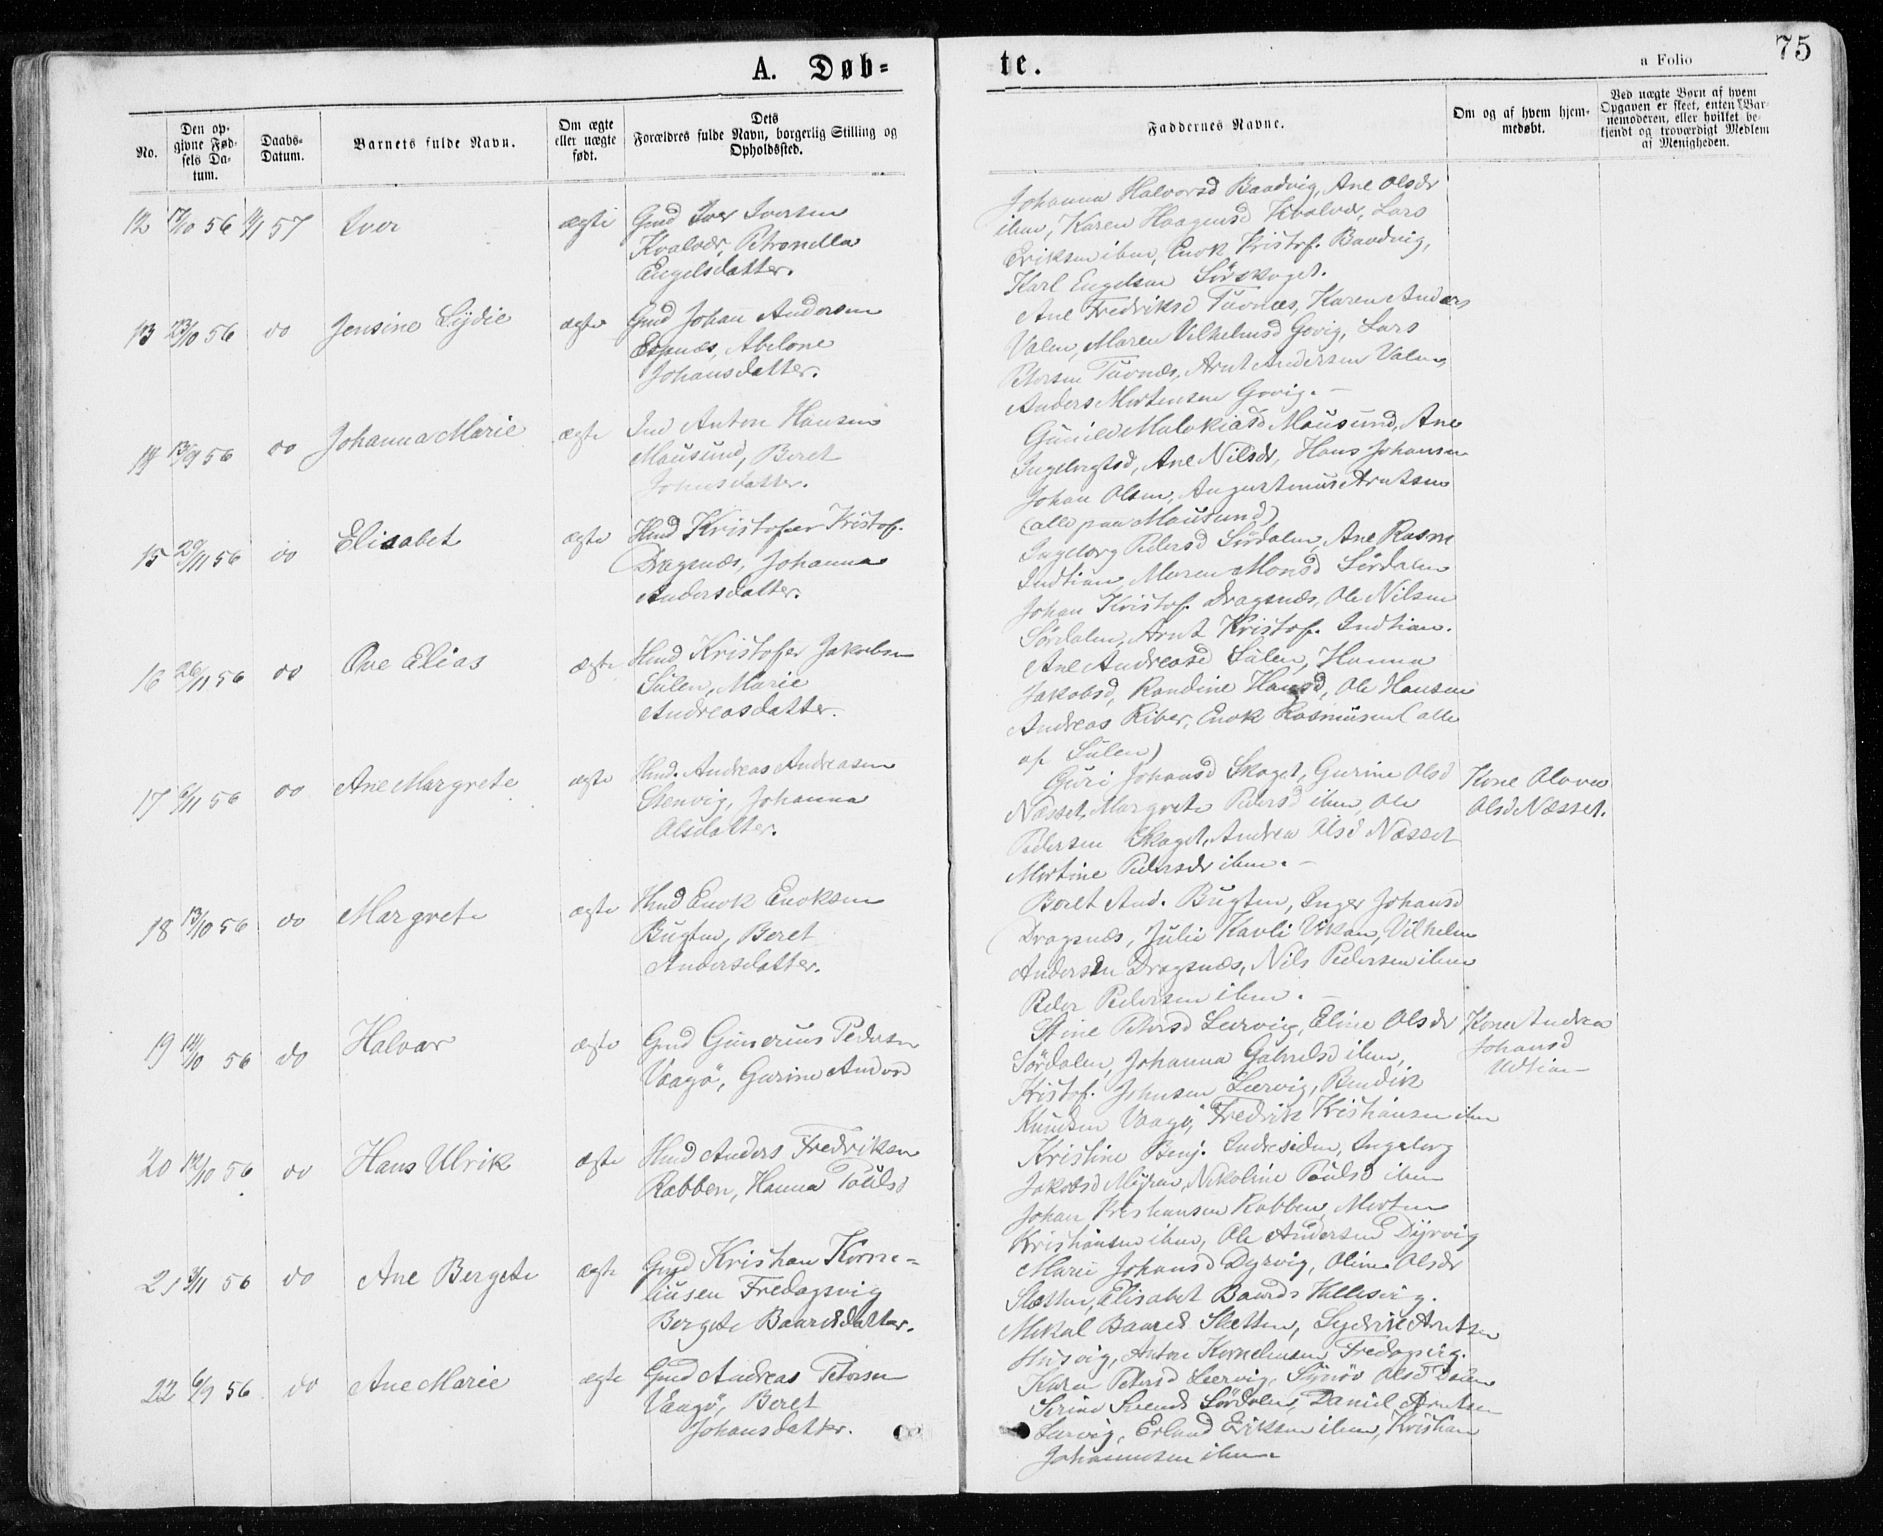 A. Døb=
te.
75
a Folio
No.
Den op-
givne Fød-
sels Da-
tum.
Daabs-
Datum.
Barnets fulde Navn.
Om ægte
eller uægte
født.
Dets
Forældres fulde Navn, borgerlig Stilling og
Opholdssted.
Faddernes Navne.
Om og af hvem hjem-
medøbt.
Ved uægte Børn af hvem
Opgaven er skeet, enten Bar-
nemoderen, eller hvilket be-
kjendt og troværdigt Medlem
af Menigheden.
12 17/10 56 11/1 57 Iver ægte Gmd Iver Iversen
Kvalvær, Petronella
Engelsdatter.
Johanna Halvorsd Baadvig, Ane Olsdr
ibm, Karen Haagensd Kvalvær, Lars
Eriksen ibm, Enok Kristof. Baadvig,
Karl Engelsen Sörskaget.
13 23/10 56 do Jensine Lydie ægte Gmd Johan Andersen
Espnæs, Abelone
Johansdatter.
Ane Fredriksd Tuvnæs, Karen Anders
Valen, Maren Vilhelmsd Gjövig, Lars
Petersen Tuvnæs, Arnt Andersen Valen,
Anders Mortensen
14 13/9 56 do Johanna Marie ægte Ind Anton Hansen
Mausund, Beret
Johnsdatter.
Gunild Malakiasd Mausund, Ane
Ingebrigtsd, Ane Nilsdr, Hans Johansen
Johan Olsen, Augustinus Arntsen
(alle paa Mausund)
15 29/11 56 do Elisabet ægte Hmd Kristofer Kristof.
Dragsnæs, Johanna
Andersdatter.
Ingeborg Pedersd Sördalen, Ane Rasm
Indtian, Maren Monsd Sördalen
Johan Kristof. Dragsnæs, Ole Nilsen
Sördalen, Arnt Kristof. Indtian.
16 26/11 56 do Ove Elias ægte Hmd Kristofer Jakobsen
Sulen, Marie
Andreasdatter.
Ane Andreasd Sulen, Hanna
Jakobsd, Randine Hansd, Ole Hansen
Andreas Riber, Enok Rasmusen (alle
af Sulen)
17 6/11 56 do Ane Margrete ægte Hmd. Andreas Andreasen
Stenvig, Johanna
Olsdatter.
Guri Johansd Skaget, Gurine Olsd
Næsset, Margrete Pedersd ibm, Ole
Pedersen Skaget, Andrea Olsd Næsset
Mortine Pedersdr ibm.
Kone Olava
Olsd Næsset.
18 13/10 56 do Margrete ægte Hmd Enok Enoksen
Bugten, Beret
Andersdatter.
Beret And. Bugten, Inger Johansd
Dragsnæs, Julie Kavli Vikan, Vilhelm
Andersen Dragsnæs, Nils Pedersen ibm
Peder Pedersen ibm.
19 14/10 56 do Halvar ægte Gmd Gunerius Pedersen
Vaagö, Gurine Andersd
Stine Petersd Leervig, Eline Olsdr
Sördalen, Johanna Gabrielsd ibm,
Kristof. Johnsen Leervig, Bendik
Knudsen Vaagö, Fredrik Kristiansen ibm
Kone Andrea
Johansd
Udtian
20 12/10 56 do Hans Ulrik ægte Hmd Anders Fredriksen
Rabben, Hanna Paulsd
Kristine Benj. Indresiden, Ingeborg
Jakobsd Myran, Nikoline Paulsd ibm
Johan Kristiansen Rabben, Morten
Kristiansen ibm, Ole Andersen Dyrvig
21 3/11 56 do Ane Bergete ægte Gmd Kristian Korne-
liusen Fredagsvig
Bergete Baardsdatter.
Marie Johansd Dyrvig, Oline Olsdr
Sletten, Elisabet Baards Hellesvig.
Mikal Baards Sletten, Arntsen
Husvig, Anton Kornelinsen Fredagsvig.
22 6/9 56 do Ane Marie ægte Gmd Andreas Petersen
Vaagö, Beret
Johansdatter.
Karen Petersd Leervig, Synöv Olsd Dalen
Serine Svends Sördalen, Daniel Arntsen
Leervig, Erland Eriksen ibm, Kristian
Johannesen ibm